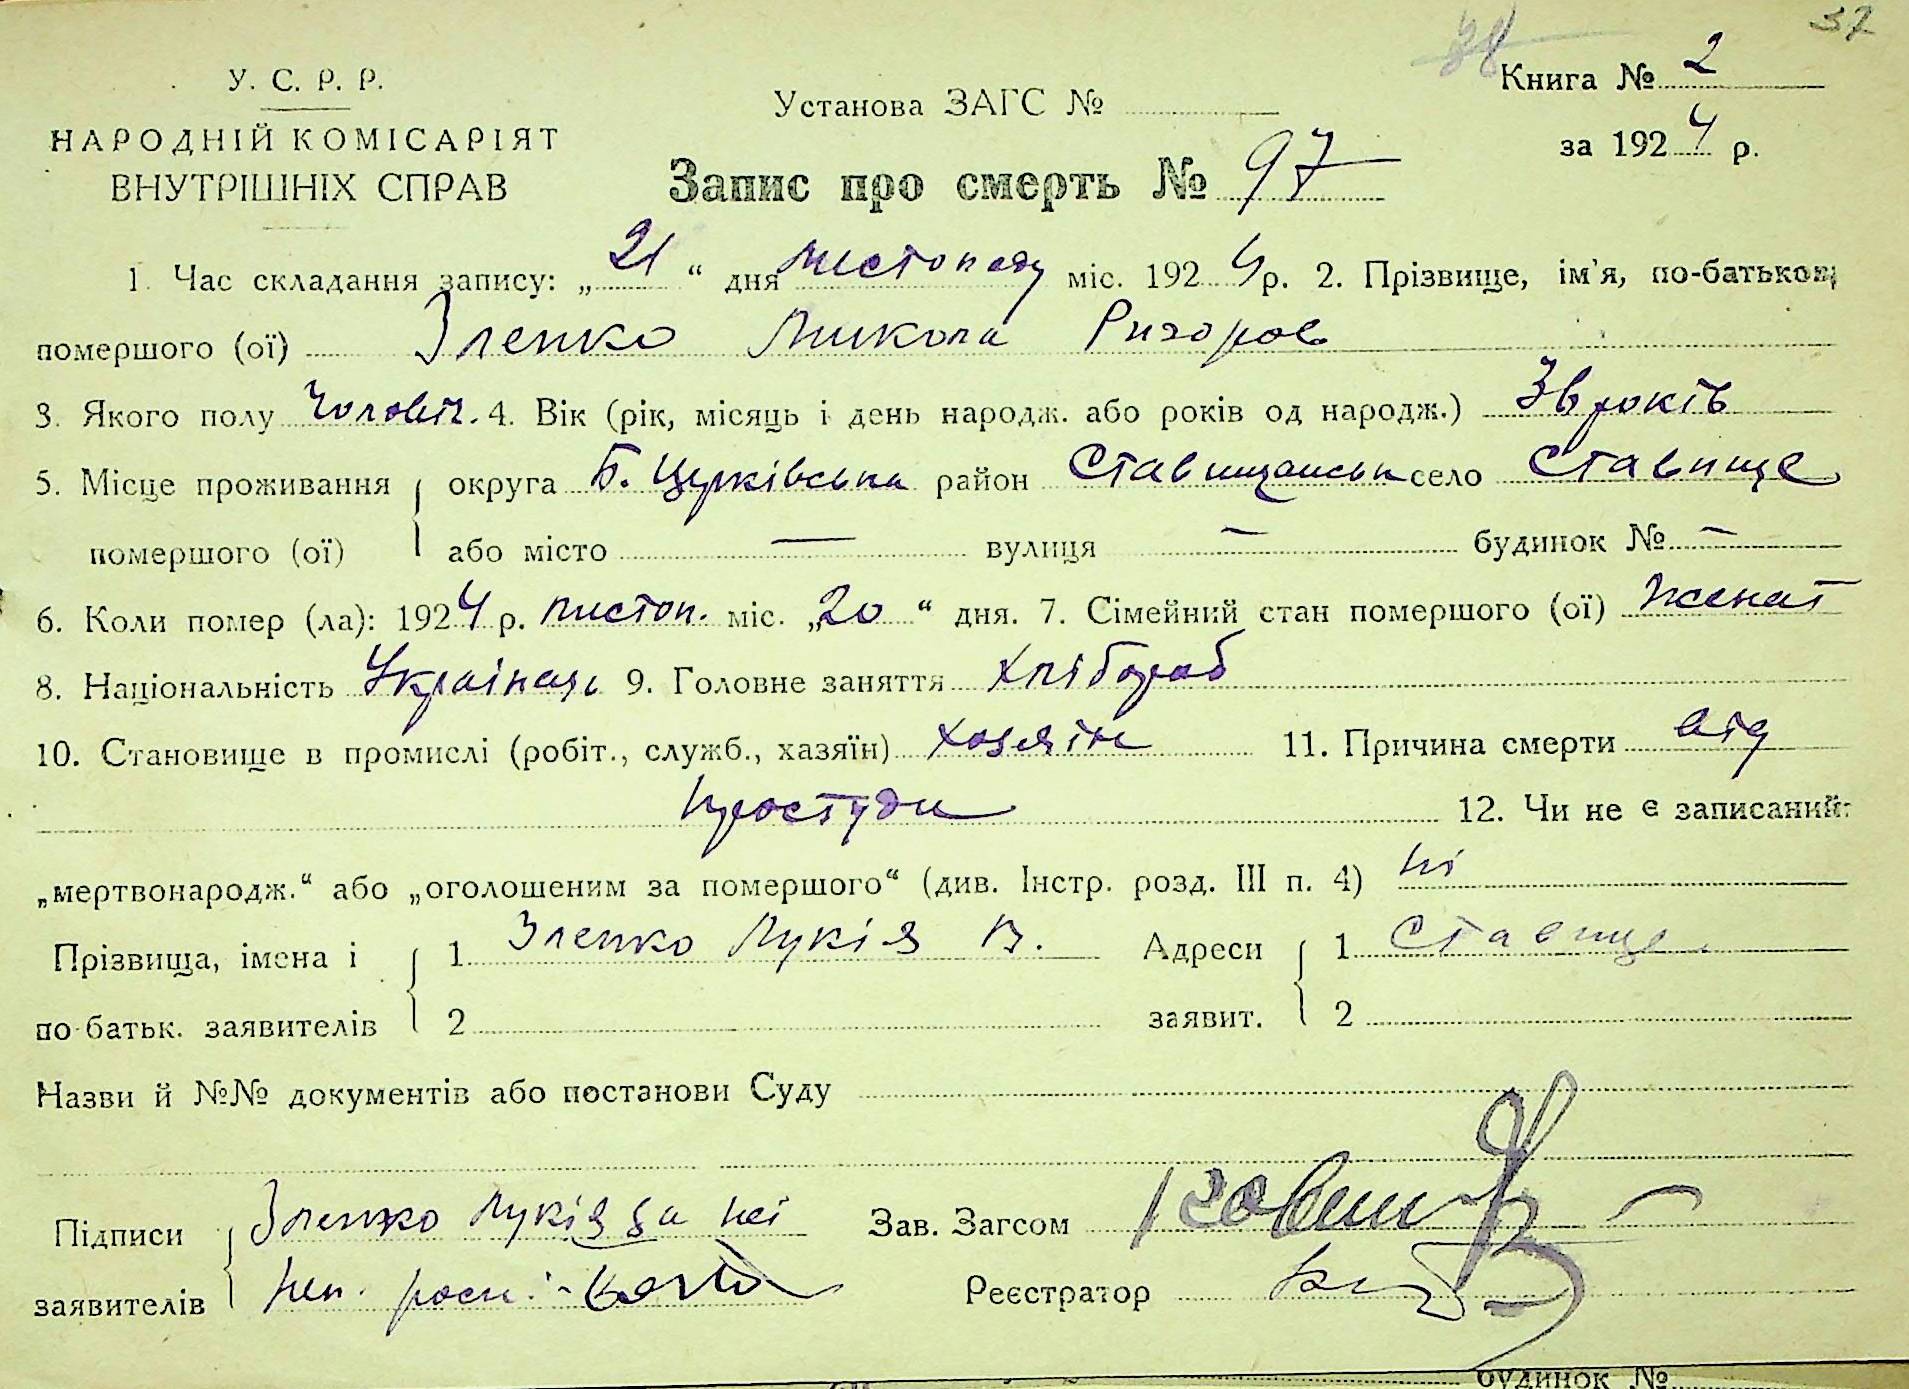 37
38
У. С. Р. Р.
НАРОДНІЙ КОМІСАРІЯТ
ВНУТРІШНІХ СПРАВ
Установа ЗАГС №
Книга № 2
за 1924 р.
Запис про смерть № 97
1. Час складання запису: „21“ дня листопаду міс. 1924 р. 2. Прізвище, ім'я, по-батькові
помершого (ої) Зленко Микола Ригоров
3. Якого полу чоловіч. 4. Вік (рік, місяць і день народж. або років од народж.) 36 років
5. Місце проживання округа Б. Церківська район Ставищанськ село Ставище
помершого (ої) або місто — вулиця — будинок № —
6. Коли помер (ла): 1924 р. листоп. міс. „20“ дня. 7. Сімейний стан помершого (ої) женат
8. Національність Українець 9. Головне заняття хлібороб
10. Становище в промислі (робіт., служб., хазяїн) хозяїн 11. Причина смерти від
простуди 12. Чи не є записаний:
„мертвонародж.“ або „оголошеним за помершого“ (див. Інстр. розд. III п. 4) ні
Прізвища, імена і 1 Зленко Лукія В. Адреси 1 Ставище
по-батьк. заявителів 2 заявит. 2
Назви й №№ документів або постанови Суду
Підписи Зленко Лукія за неї Зав. Загсом
заявителів неп. росп. Реєстратор
будинок №